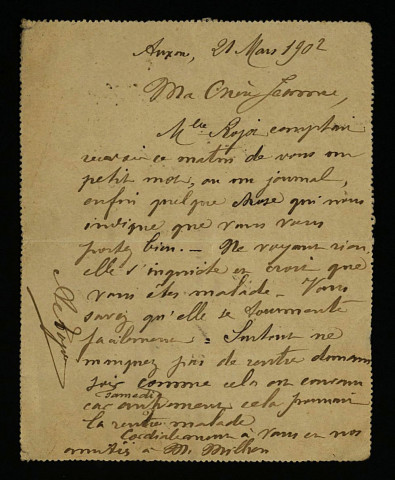 Auxon, 21 Mars 1902
Ma Chère Jeanne,
Mlle comptait
recevoir ce matin de vous un
petit mot, ou un journal,
enfin quelque chose qui nous
indique que vous vous
portez bien. — Ne voyant rien,
elle s'inquiète et croit que
vous êtes malade. — Vous
savez qu'elle se tourmente
facilement. Surtout ne
manquez pas de rentrer demain
soir comme cela est convenu
samedi
car autrement cela pourrait
la rendre malade
Cordialement à vous et nos
amitiés à M.